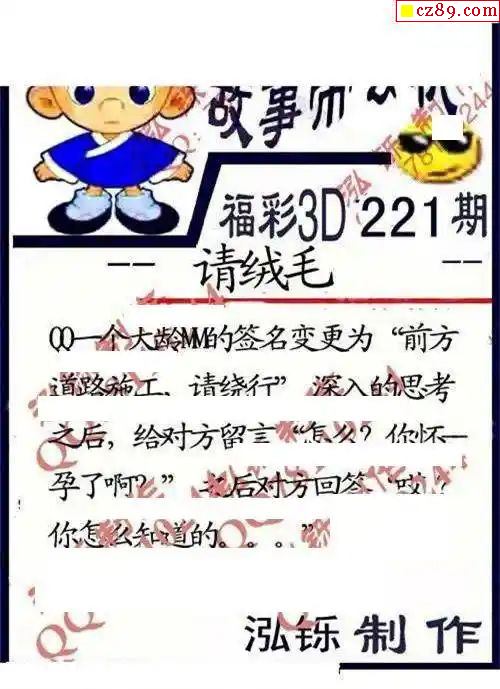 cz89.com
故事
福彩3D 221期
-- 请绒毛 --
QQ一个大龄MM的签名变更为“前方
道路施工,请绕行” 深入的思考
之后,给对方留言“怎么?你怀
孕了啊?” 之后对方回答“哎?
你怎么知道的。。。”
泓铄制作